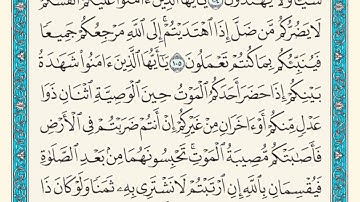 شَيْـًٔا وَلَا يَهْتَدُونَ ١٠٤ يَٰٓأَيُّهَا ٱلَّذِينَ ءَامَنُوا۟ عَلَيْكُمْ أَنفُسَكُمْ
لَا يَضُرُّكُم مَّن ضَلَّ إِذَا ٱهْتَدَيْتُمْ ۚ إِلَى ٱللَّهِ مَرْجِعُكُمْ جَمِيعًا
فَيُنَبِّئُكُم بِمَا كُنتُمْ تَعْمَلُونَ ١٠٥ يَٰٓأَيُّهَا ٱلَّذِينَ ءَامَنُوا۟ شَهَٰدَةُ
بَيْنِكُمْ إِذَا حَضَرَ أَحَدَكُمُ ٱلْمَوْتُ حِينَ ٱلْوَصِيَّةِ ٱثْنَانِ ذَوَا
عَدْلٍ مِّنكُمْ أَوْ ءَاخَرَانِ مِنْ غَيْرِكُمْ إِنْ أَنتُمْ ضَرَبْتُمْ فِى ٱلْأَرْضِ
فَأَصَٰبَتْكُم مُّصِيبَةُ ٱلْمَوْتِ ۚ تَحْبِسُونَهُمَا مِنۢ بَعْدِ ٱلصَّلَوٰةِ
فَيُقْسِمَانِ بِٱللَّهِ إِنِ ٱرْتَبْتُمْ لَا نَشْتَرِى بِهِۦ ثَمَنًا وَلَوْ كَانَ ذَا